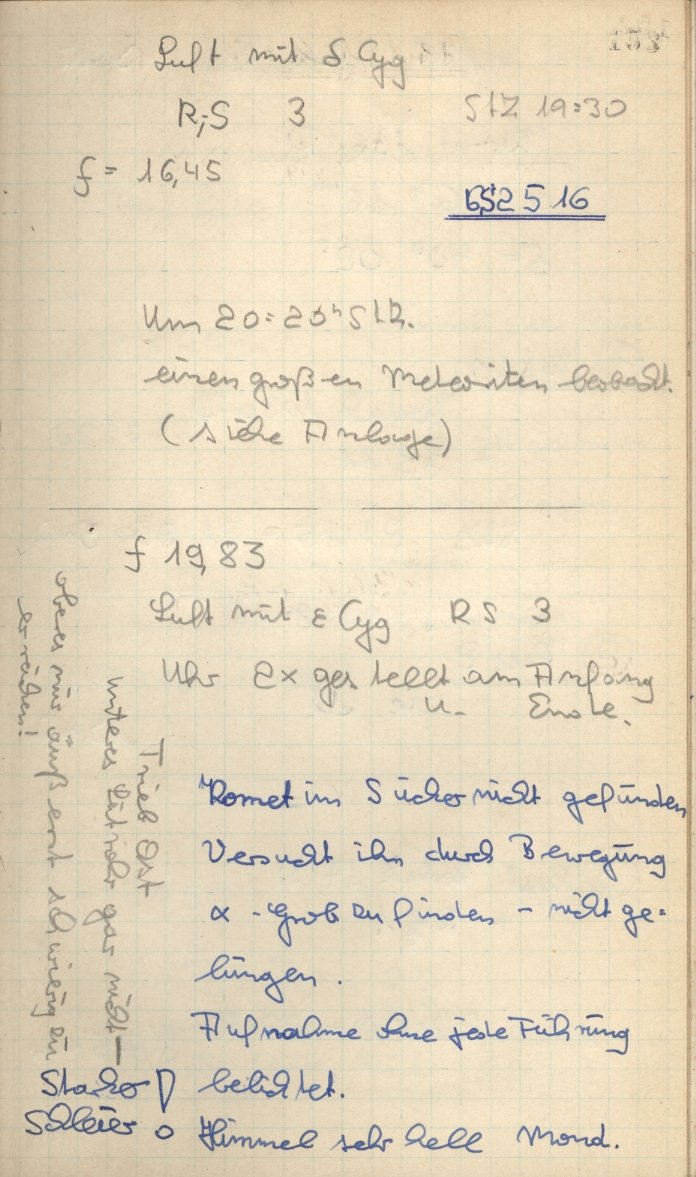 Luft mit δ Cyg
R,S 3 StZ 19:30
f = 16,45
2516
Um 20:20ʰ StZ.
einen großen Meteoriten beobacht.
(siehe Anlage)
f 19,83
Luft mit ε Cyg RS 3
Uhr 2x gestellt am Anfang
u. Ende.
Komet im Sucher nicht gefunden
Versucht ihn durch Bewegung
α - Grob zu finden - nicht ge=
lungen.
Aufnahme ohne jede Führung
belichtet.
Himmel sehr hell Mond.
Starker
Schleier !
Trieb Ost
unteres gar nicht —
oberes nur äußerst schwierig zu